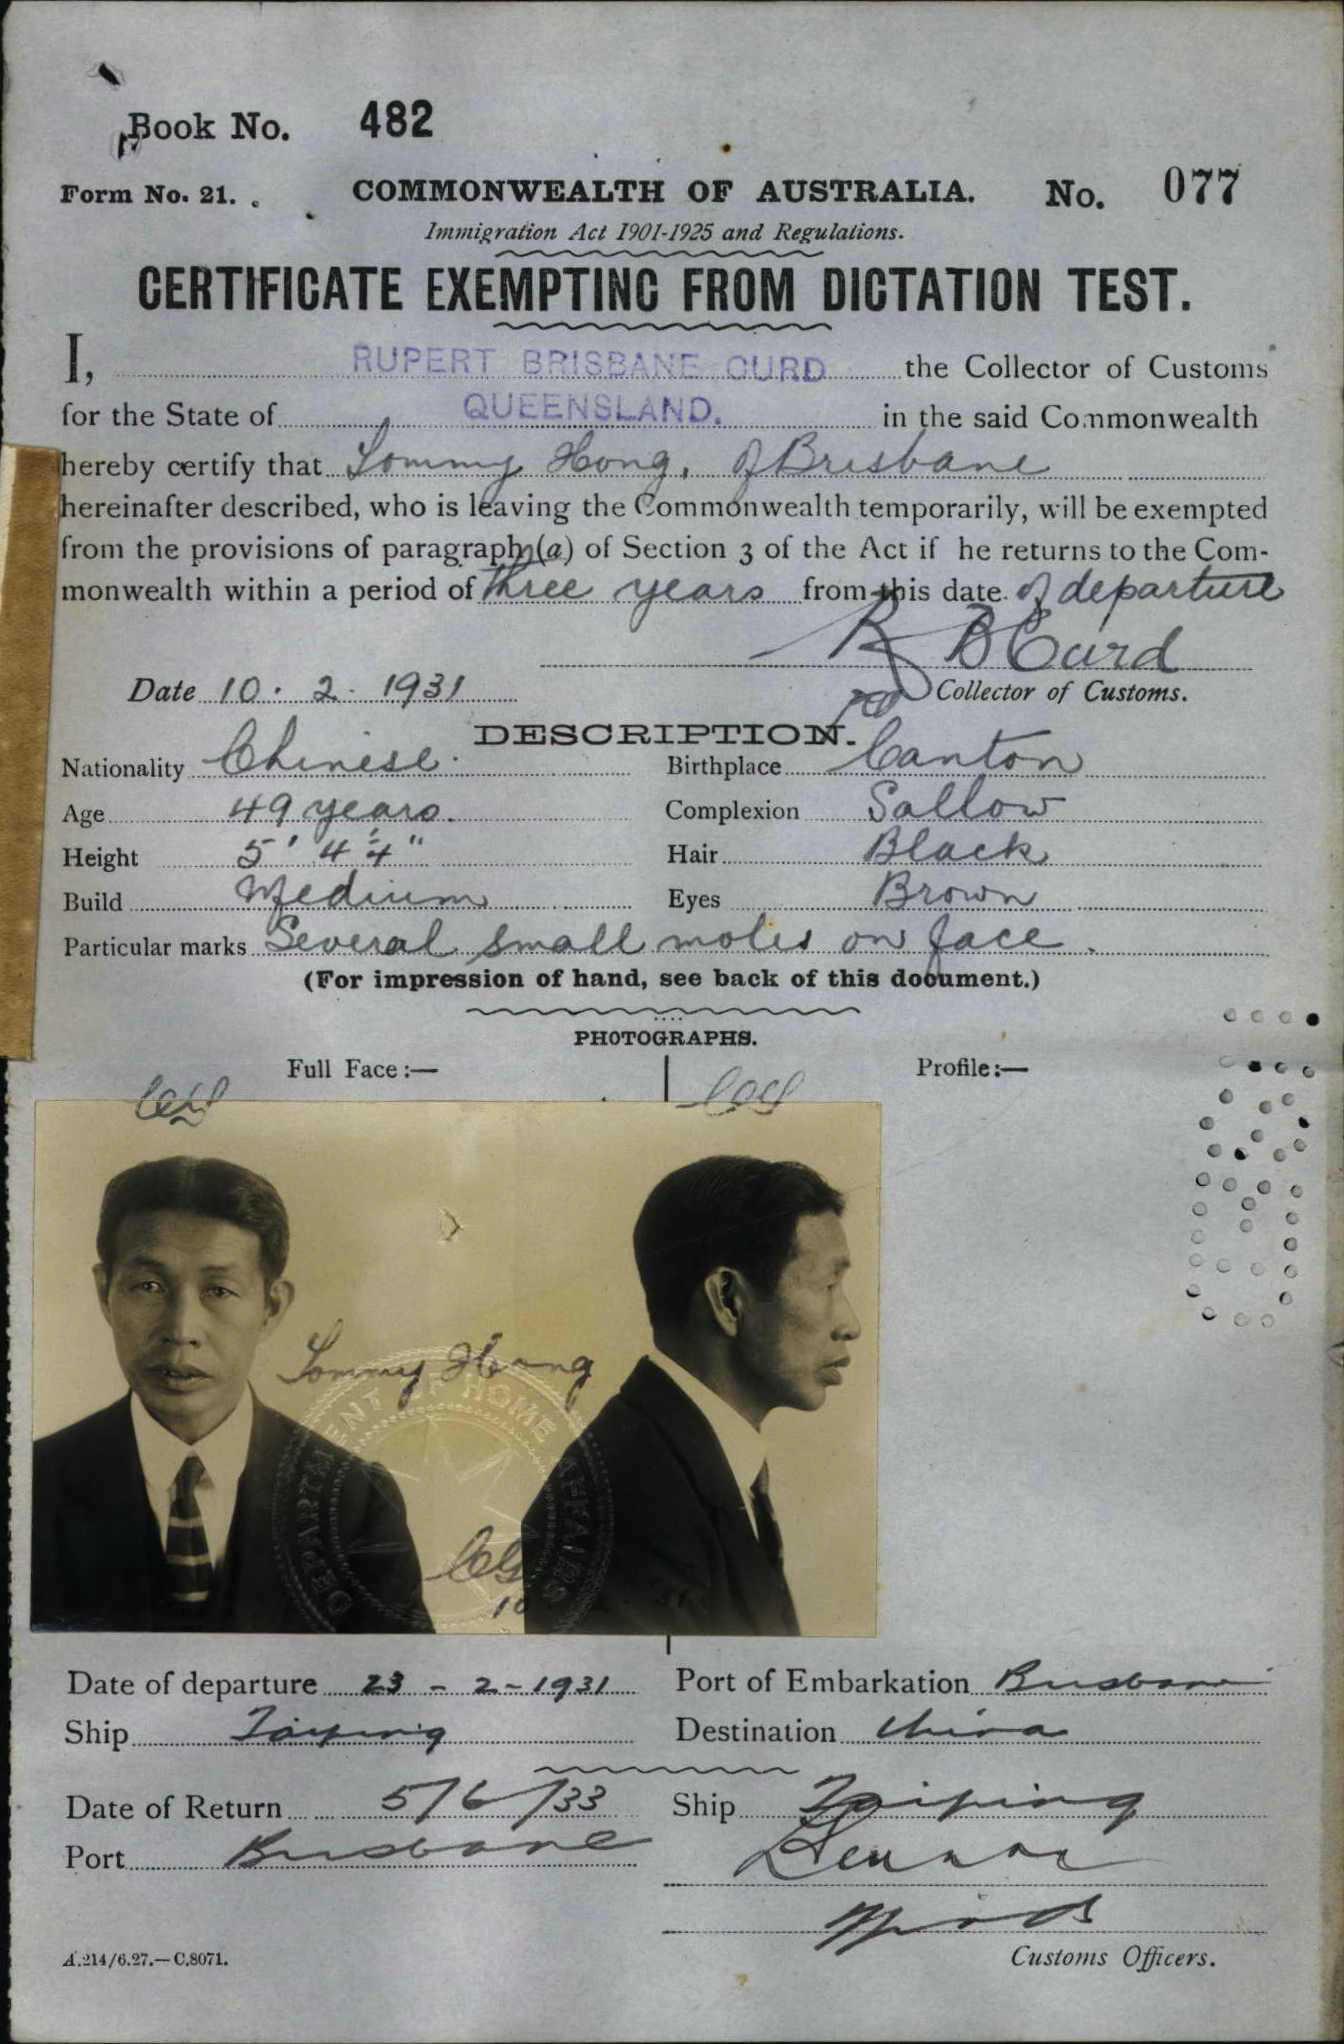 Book No. 482
Form No. 21. COMMONWEALTH OF AUSTRALIA. No. 077
Immigration Act 1901-1925 and Regulations.
CERTIFICATE EXEMPTING FROM DICTATION TEST.
I, RUPERT BRISBANE CURD the Collector of Customs
for the State of QUEENSLAND. in the said Commonwealth
hereby certify that Tommy Hong, of Brisbane
hereinafter described, who is leaving the Commonwealth temporarily, will be exempted
from the provisions of paragraph (a) of Section 3 of the Act if he returns to the Com-
monwealth within a period of three years from this date of departure
R B Curd
Date 10. 2. 1931 Collector of Customs.
DESCRIPTION.
Nationality Chinese. Birthplace Canton
Age 49 years. Complexion Sallow
Height 5' 4¼" Hair Black
Build Medium Eyes Brown
Particular marks Several small moles on face.
(For impression of hand, see back of this document.)
PHOTOGRAPHS.
Full Face:— Profile:—
Tommy Hong
DEPARTMENT OF HOME AFFAIRS
Date of departure 23-2-1931 Port of Embarkation Brisbane
Ship Taiping Destination China
Date of Return 5/6/33 Ship Taiping
Port Brisbane
A.214/6.27.—C.8071. Customs Officers.